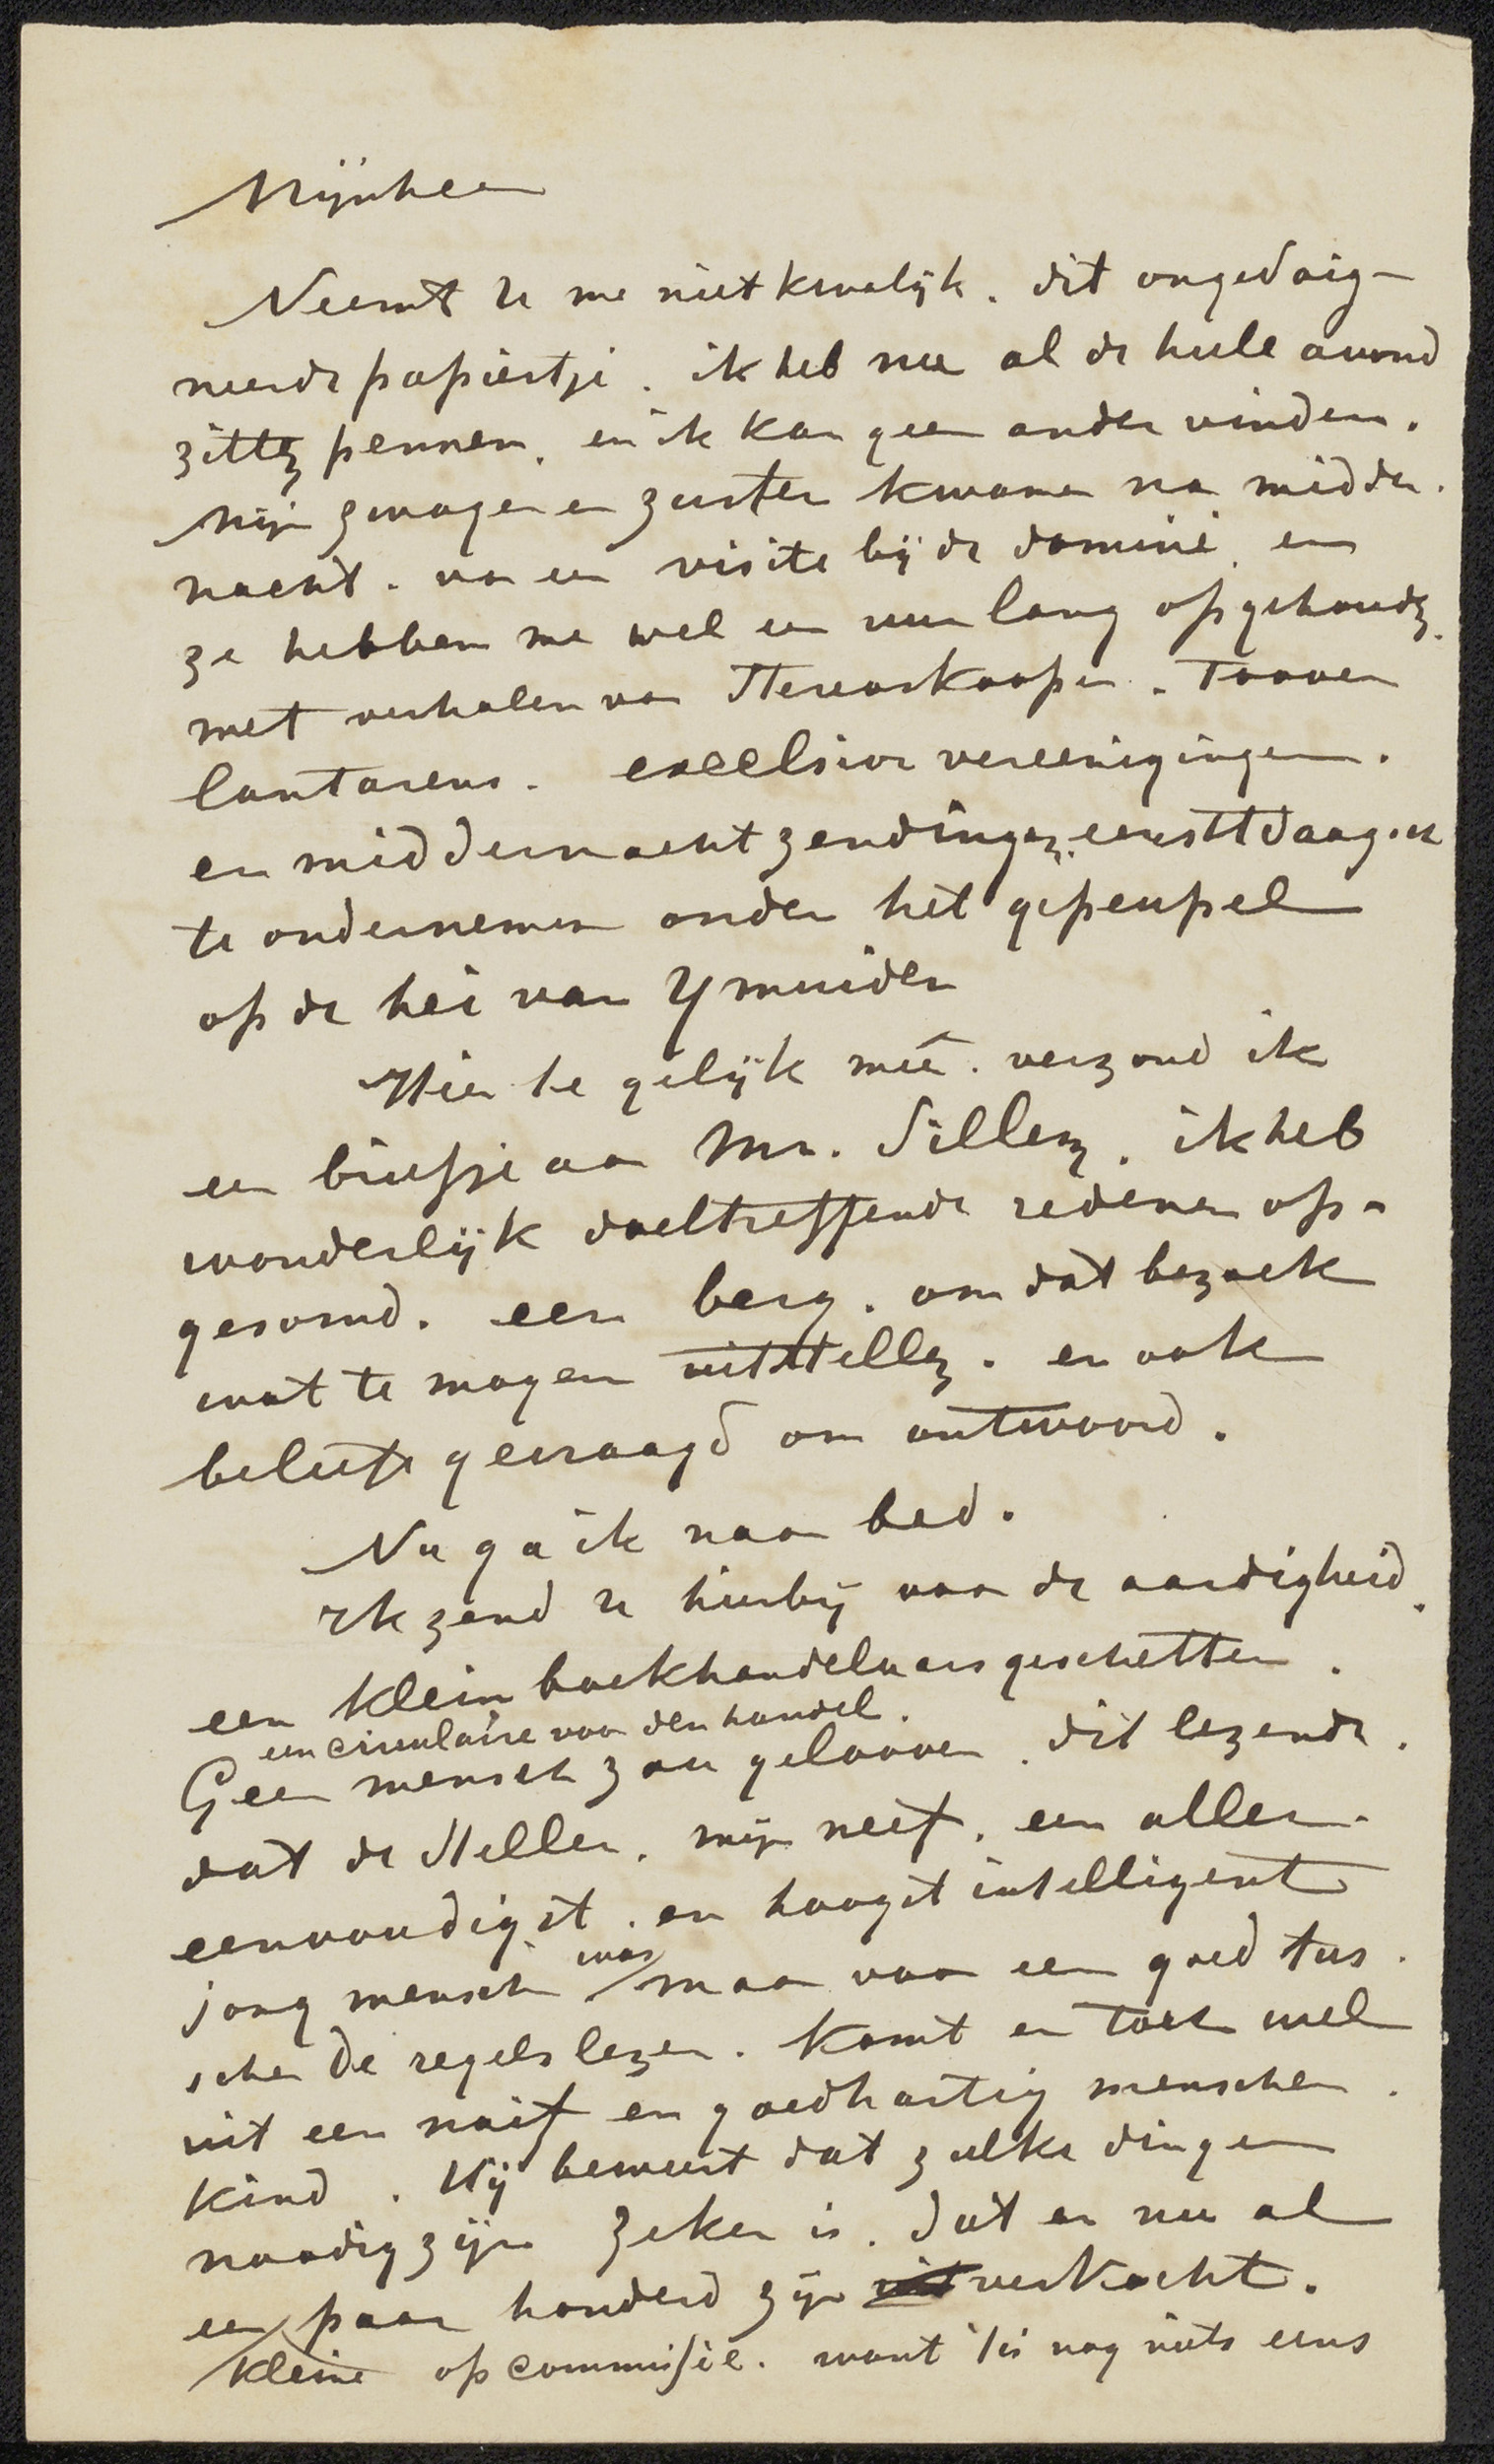 Mijnheer
Neemt u me niet kwalijk. dit ongedaig-
neerde papiertje. ik heb nu al de heele avond
zitten pennen. en ik kan geen ander vinden.
Mijn zwager en zuster kwamen na midder.
nacht. van een visite bij de dominé en
ze hebben me wel een uur lang opgehouden.
met verhalen van stereoskoopen. Toover
lantarens. excelsior vereenigingen.
en middernachtzendingen. eerstdaags
te ondernemen onder het gepeupel
op de hei van Ymuiden
Hier te gelijk meê. verzond ik
een briefje aan Mr. Sillem. ik heb
wonderlijk doeltreffende redenen op-
gesomd. een berg. om dat bezoek
wat te mogen uitstellen. en ook
beleefd gevraagd om antwoord.
Nu ga ik naar bed.
Ik zend u hierbij voor de aardigheid.
een klein boekhandelaarsgeschetter.
een circulaire voor den handel.
Geen mensch zou gelooven. dit lezende.
dat de steller. mijn neef. een aller-
eenvoudigst. en hoogst intelligent
jong mensch was maar voor een goed tus.
schen de regels lezer. komt er toch wel
uit een naïf en goedhartig menschen.
kind. Hij beweert dat zulke dingen
noodig zijn zeker is. dat er nu al
een paar honderd zijn verkocht.
kleine op commissie. want 't is nog niets eens